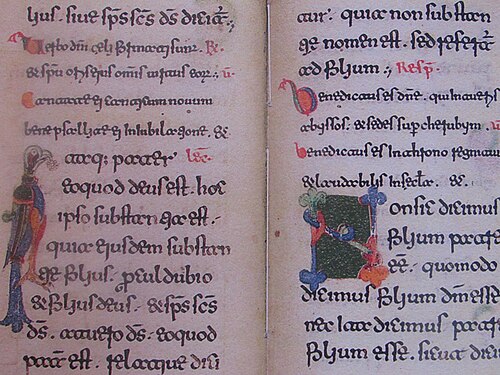 lius. siue sps scs ds dicit;
Verbo dni celi firmati sunt. R.
& spu oris eius omis uirtus eor. v.
Cantate ei canticum nouum
bene psallite ei in iubilatione. &c.
Itaq; pater lec.
eo quod deus est. hoc
ipso substantia est.
quia eiusdem substan
tiae filius. procul dubio
& filius deus. & sps scs
ds. at uero ds. eo quod
pater est. relatiue dici
tur. quia non substan
tiae nomen est. sed refert
ad filium. Resp.
Benedictus es dne. qui intueris
abyssos. & sedes sup cherubym. v
benedictus es in throno regni tui
& laudabilis in secla. &c.
Non sic dicimus
filium patre
ee. quomodo
dicimus filium dm esse
nec ita dicimus patre
filium esse. sicut dici